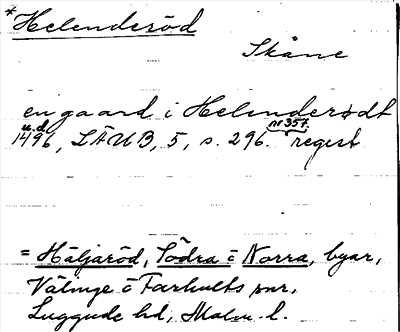 *Helenderöd
Skåne
en gaard i Helenderødt
u.d. nr 357.
1496, LÄUB, 5, s. 296. regest
= Häljaröd, Södra o Norra, byar,
Välinge o Farhults snr,
Luggude hd, Malm. l.